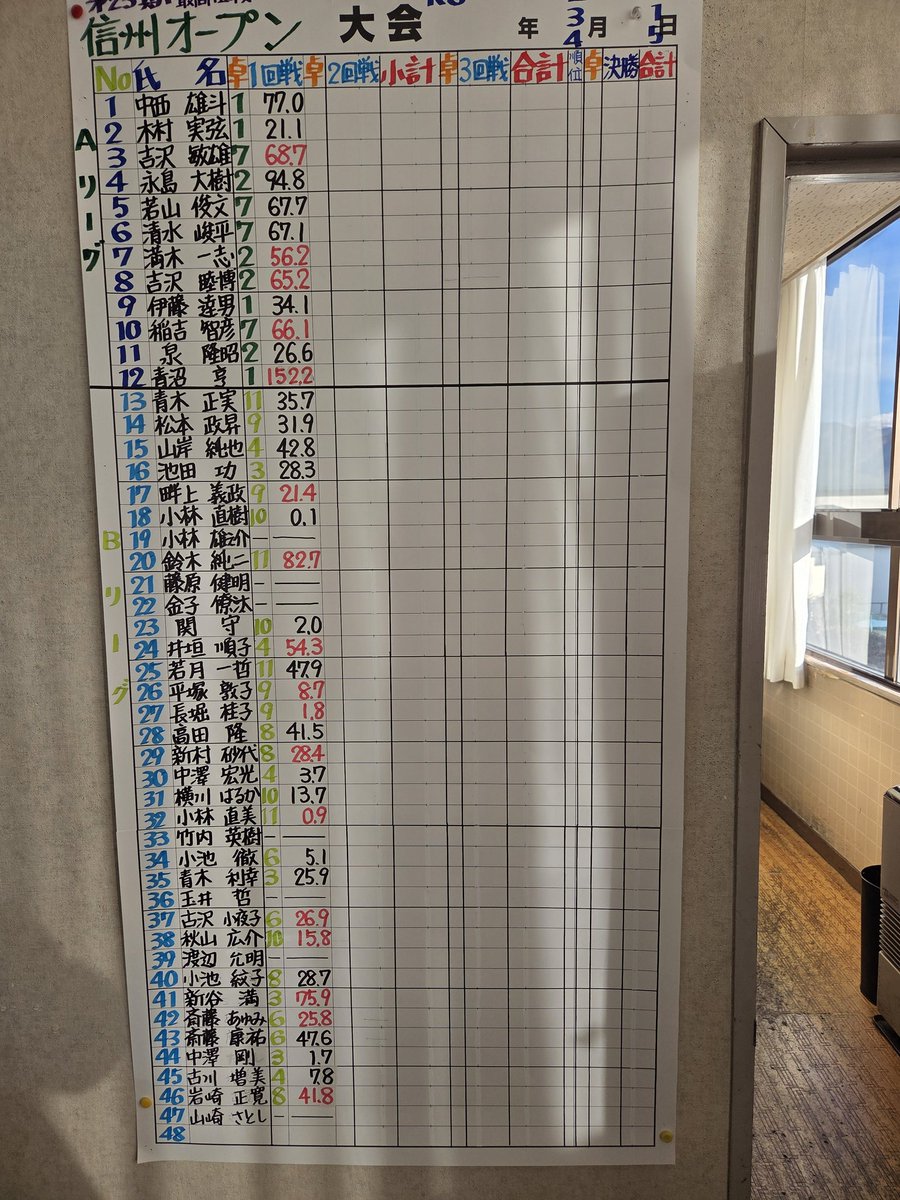 信州オープン 大会 年 3 4 月 1 5 日
No 氏 名 卓 1回戦 卓 2回戦 小計 卓 3回戦 合計 順位 卓 決勝 合計
Aリーグ
1 中西 雄斗 1 77.0
2 木村 実弦 1 21.1
3 吉沢 敏雄 7 68.7
4 永島 大樹 2 94.8
5 若山 俊文 7 67.7
6 清水 峻平 7 67.1
7 満木 一志 2 56.2
8 吉沢 睦博 2 65.2
9 伊藤 達男 1 34.1
10 稲吉 智彦 7 66.1
11 泉 隆昭 2 26.6
12 青沼 亨 1 152.2
Bリーグ
13 青木 正実 11 35.7
14 松本 政昇 9 31.9
15 山岸 純也 4 42.8
16 池田 功 3 28.3
17 畔上 義政 9 21.4
18 小林 直樹 10 0.1
19 小林 雄介 – —
20 鈴木 純二 11 82.7
21 藤原 健明 – —
22 金子 僚汰 – —
23 関 守 10 2.0
24 井垣 順子 4 54.3
25 若月 一哲 11 47.9
26 平塚 敦子 9 8.7
27 長堀 桂子 9 1.8
28 高田 隆 8 41.5
29 新村 砂代 8 28.4
30 中澤 宏光 4 3.7
31 横川 はるか 10 13.7
32 小林 直美 11 0.9
33 竹内 英樹 – —
34 小池 徹 6 5.1
35 青木 利幸 3 25.9
36 玉井 哲 – —
37 古沢 小夜子 6 26.9
38 秋山 広介 10 15.8
39 渡辺 允明 – —
40 小池 紋子 8 28.7
41 新谷 満 3 75.9
42 斎藤 あゆみ 6 25.8
43 斎藤 康祐 6 47.6
44 中澤 剛 3 1.7
45 古川 増美 4 7.8
46 岩崎 正寛 8 41.8
47 山崎 さとし – —
48